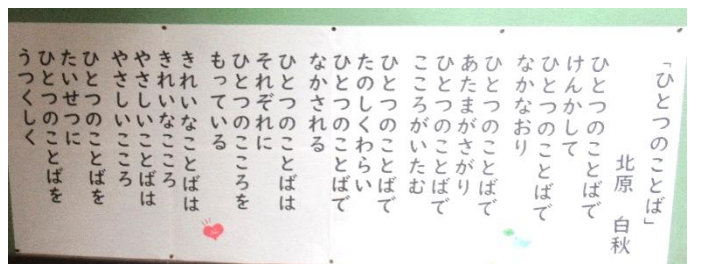 「ひとつのことば」
北原 白秋
ひとつのことばで
けんかして
ひとつのことばで
なかなおり
ひとつのことばで
あたまがさがり
ひとつのことばで
こころがいたむ
ひとつのことばで
たのしくわらい
ひとつのことばで
なかされる
ひとつのことばは
それぞれに
ひとつのこころを
もっている
きれいなことばは
きれいなこころ
やさしいことばは
やさしいこころ
ひとつのことばを
たいせつに
ひとつのことばを
うつくしく